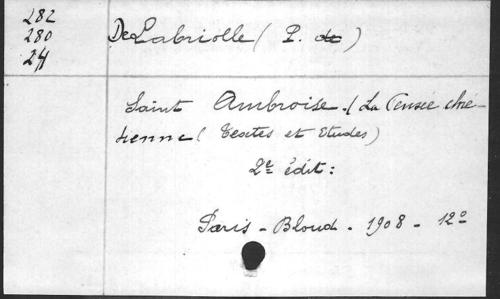 282
280
24
De Labriolle ( P. de )
Saint Ambroise. ( La Pensée chré-
tienne ( Textes et Etudes )
2e édit :
Paris - Bloud - 1908 - 12º